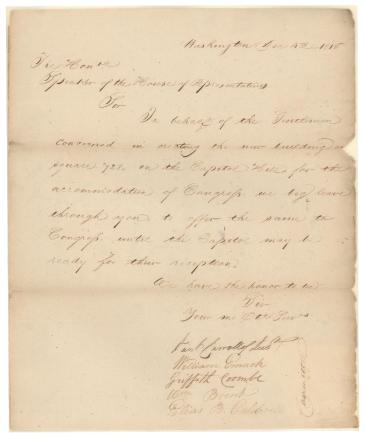 Washington Dec 4th 1815
The Honble
Speaker of the House of Representatives
Sir
In behalf of the Gentlemen
concerned in erecting the new building on
square 728 on the Capitol Hill for the
accommodation of Congress we beg leave
through you to offer the same to
Congress until the Capitol may be
ready for their reception.
We have the honor to be
Sir
Your mo Obt Servts
Danl Carroll of Dudn
William Emack
Griffith Coombe
Wm Brent
Elias B. Caldwell
Committee